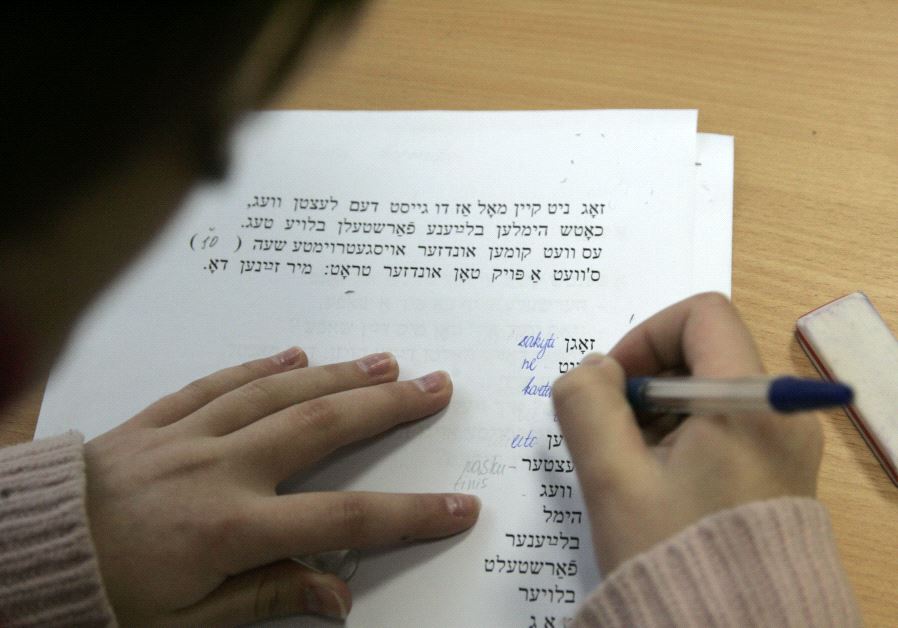 זאָג ניט קיין מאָל אַז דו גייסט דעם לעצטן וועג,
כאָטש הימלען בלײַענע פֿאַרשטעלן בלויע טעג.
עס וועט קומען אונדזער אויסגעטרוימטע שעה ( 10 )
ס'וועט אַ פּויק טאָן אונדזער טראָט: מיר זײַנען דאָ.
זאָגן sakyti
ne
eitc
וועג
הימל
בלײַענער
פֿאַרשטעלט
בלויער